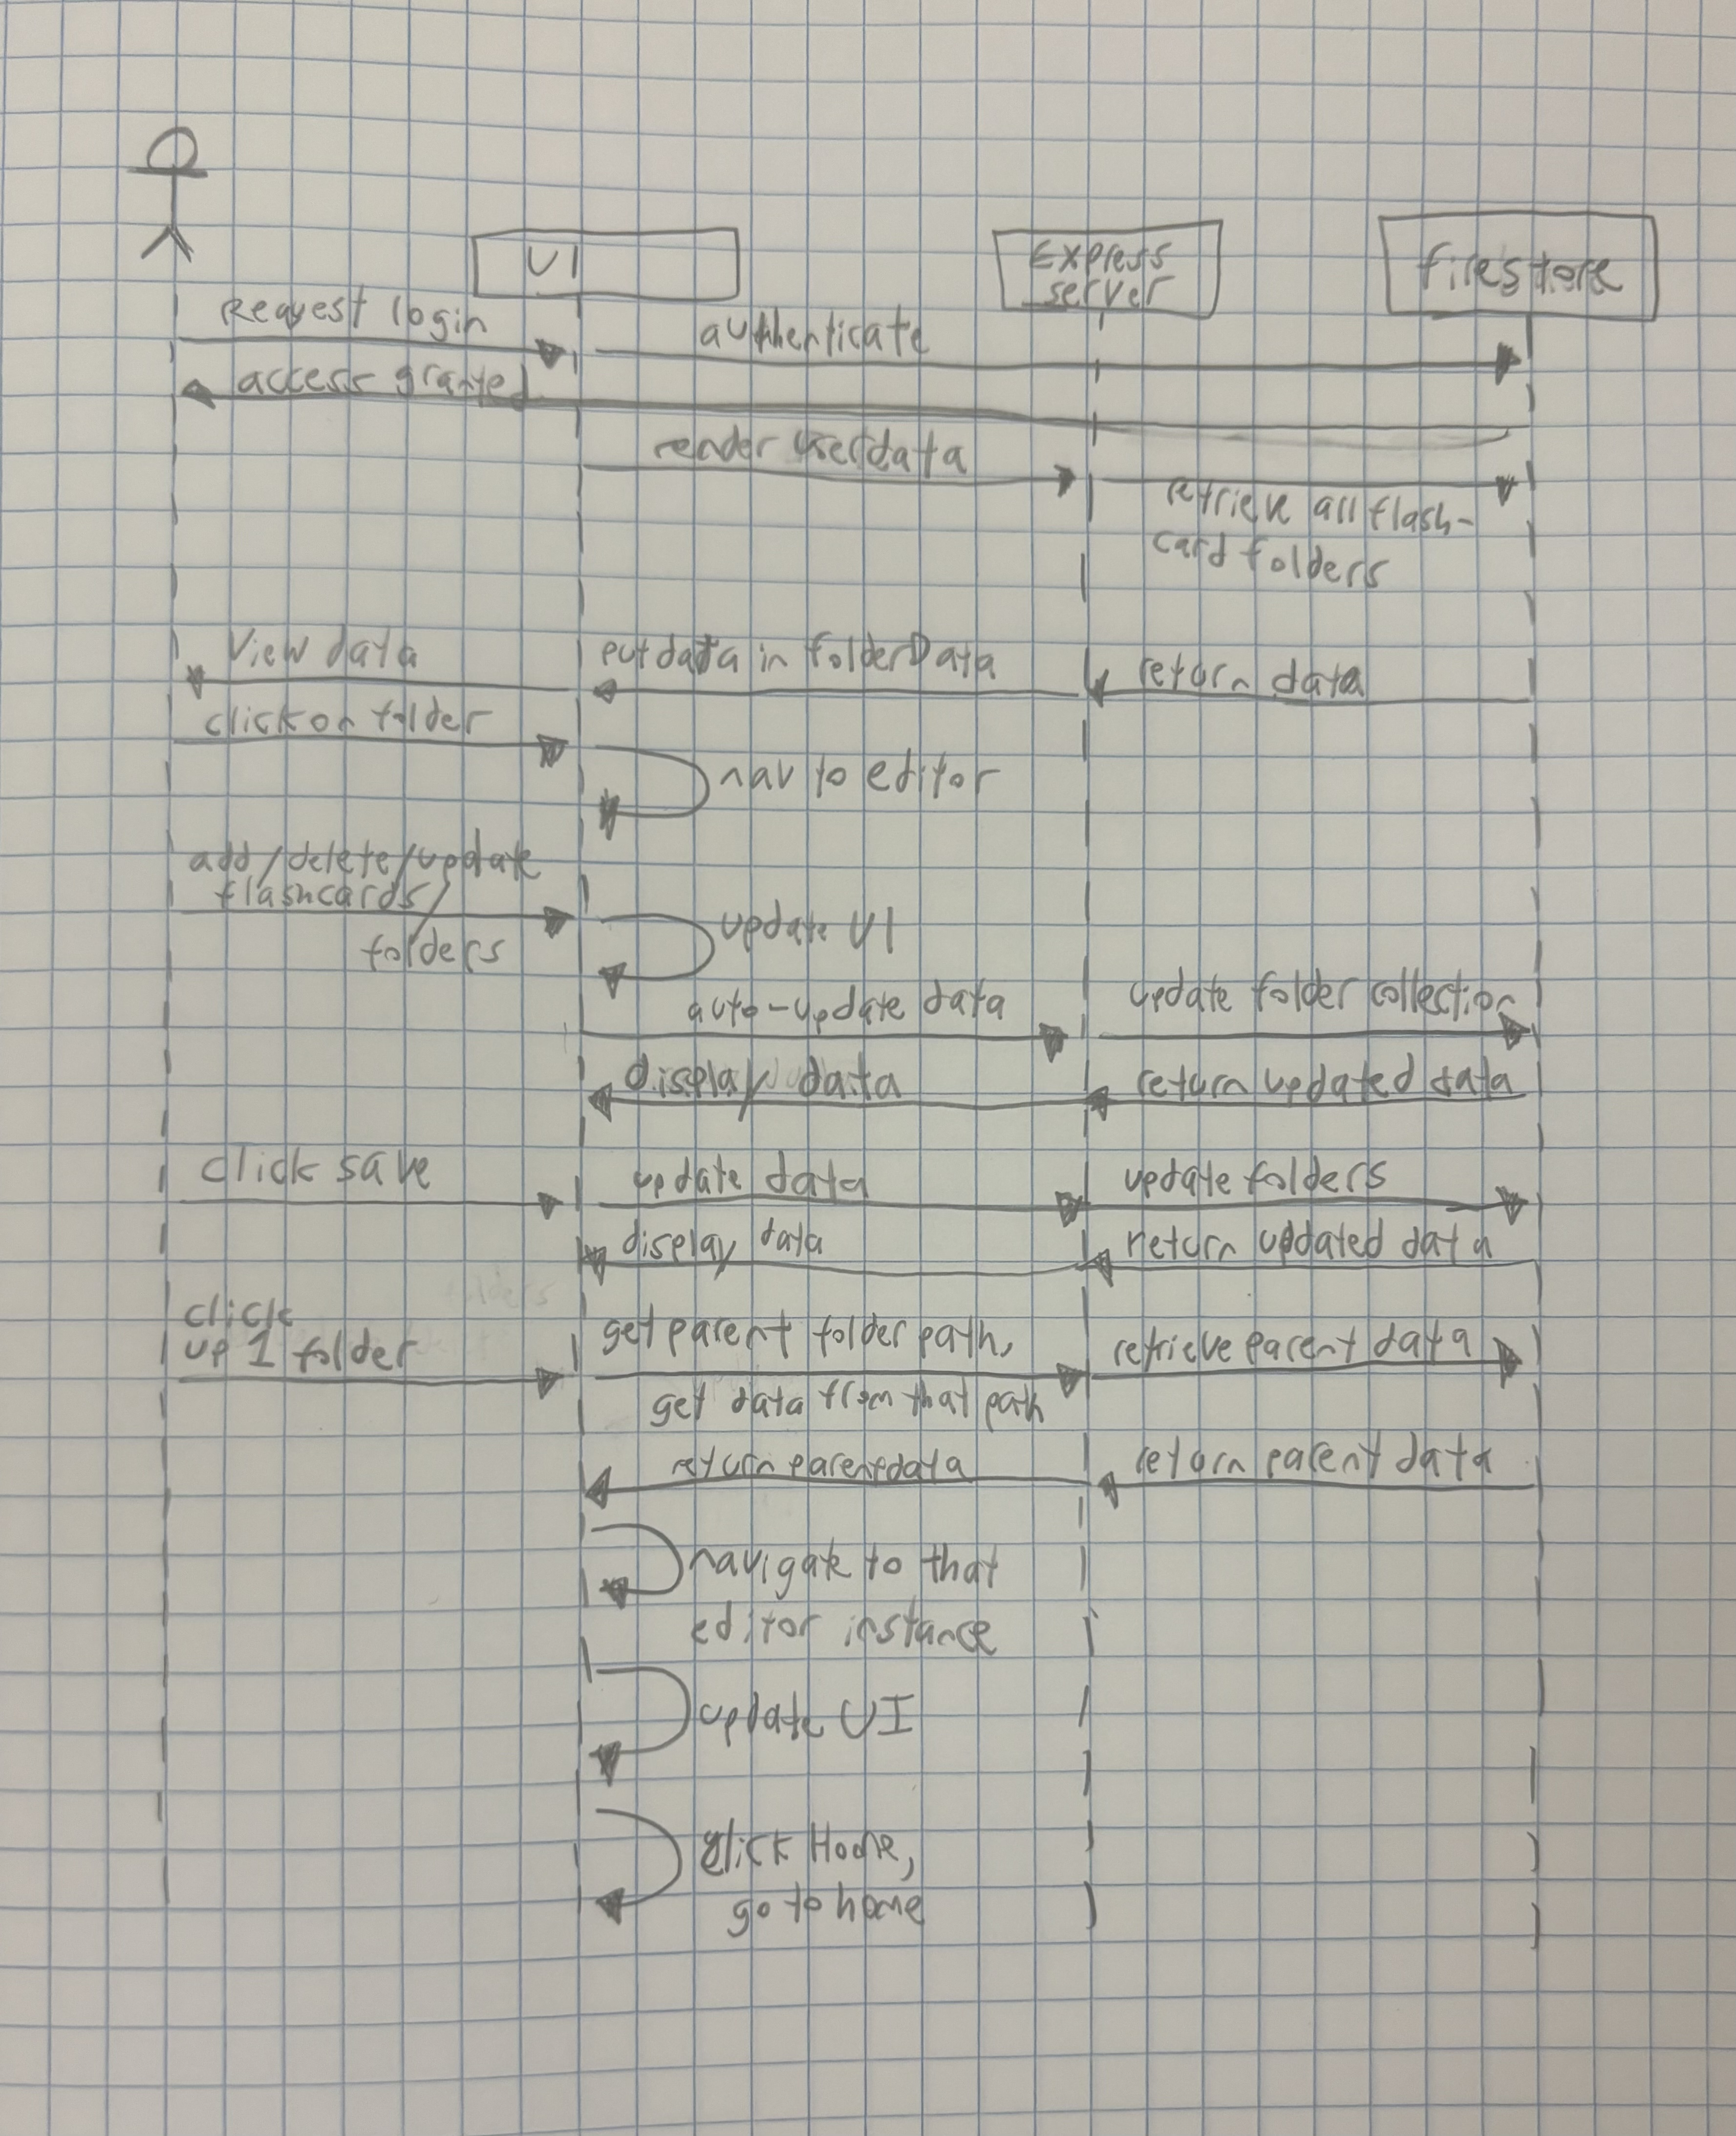 UI
Express
server
firestore
Request login
authenticate
access granted
render userdata
retrieve all flash-
card folders
View data
put data in folderData
return data
click on folder
nav to editor
add/delete/update
flashcards/
folders
update UI
auto-update data
update folder collection
display data
return updated data
click save
update data
update folders
display data
return updated data
click
up 1 folder
get parent folder path,
get data from that path
retrieve parent data
return parent data
return parent data
navigate to that
editor instance
update UI
click Home,
go to home